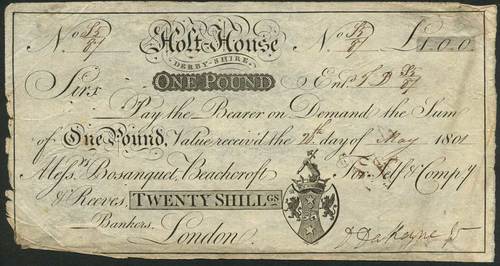 No Holt-House No £1.0.0
DERBY-SHIRE
Sirs ONE POUND Ent.
Pay the Bearer on Demand the Sum
of One Pound. Value receiv'd the day of May 1801
Messrs. Bosanquet, Beachcroft For Self & Compy
& Reeves, TWENTY SHILLGS
Bankers, London.